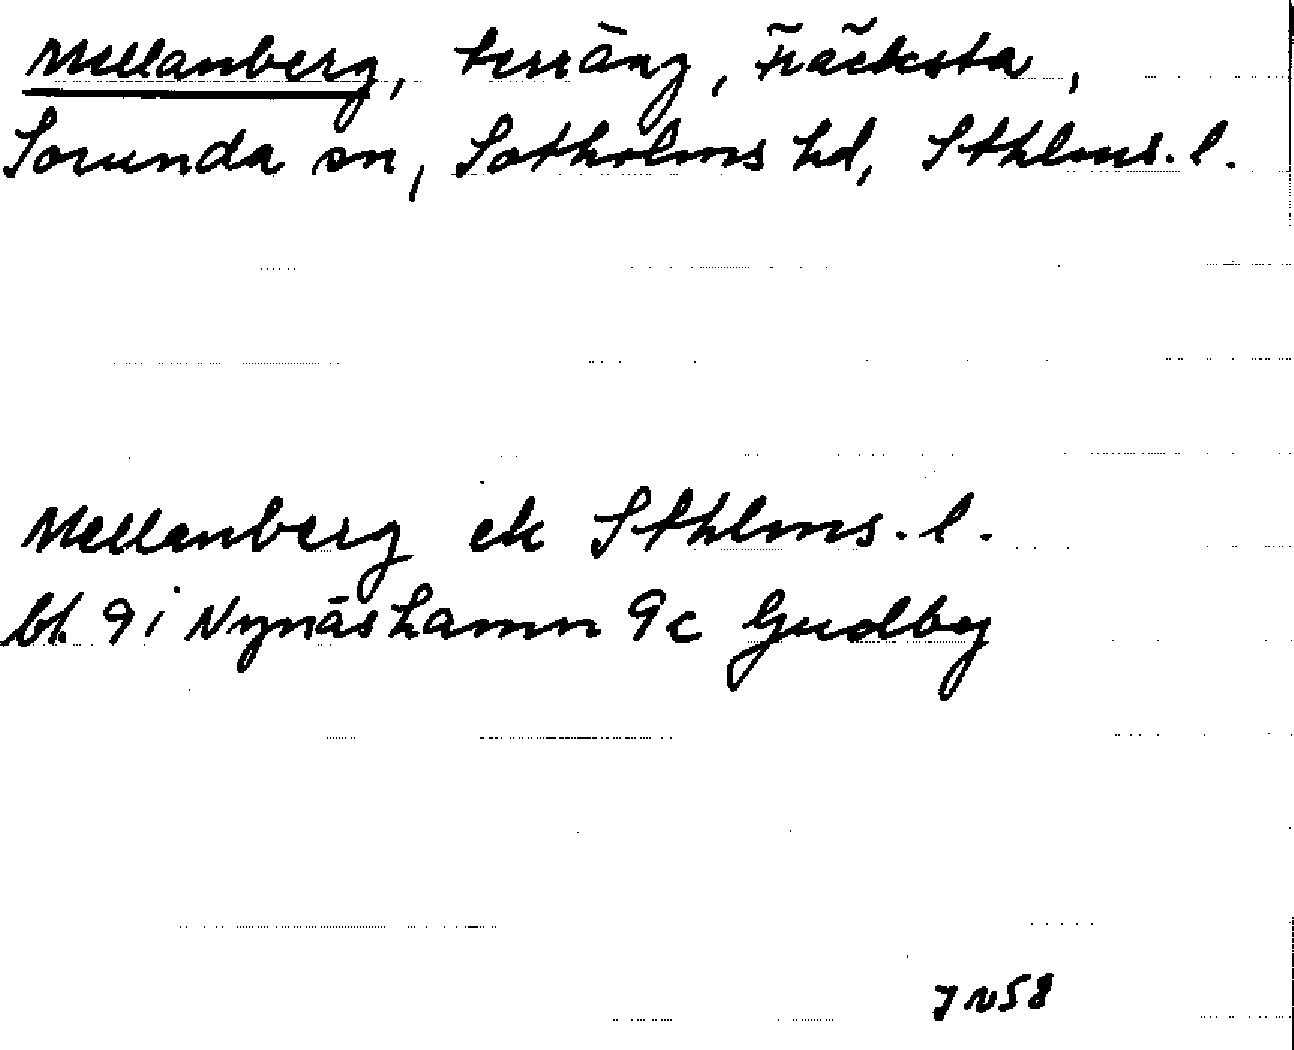 Mellanberg, terräng, Fräcksta,
Sorunda sn, Sotholms hd, Sthlms. l.
Mellanberg ek Sthlms. l.
bl. 9i Nynäshamn 9c Gudby